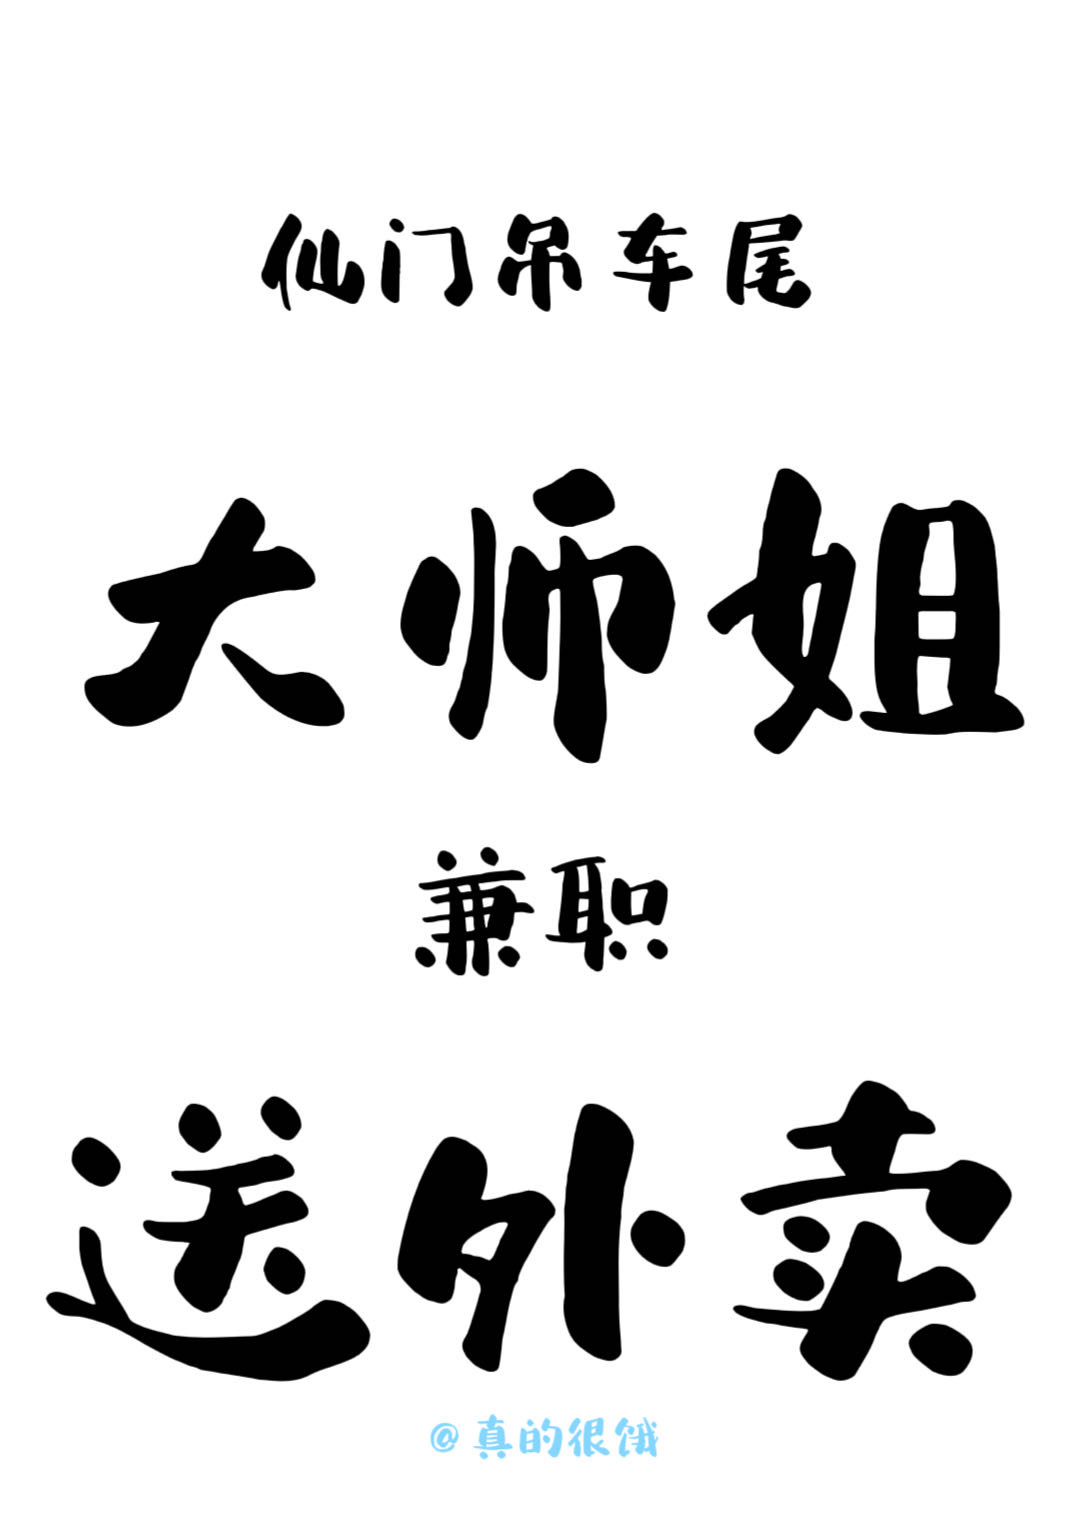 仙门吊车尾
大师姐
兼职
送外卖
@真的很饿